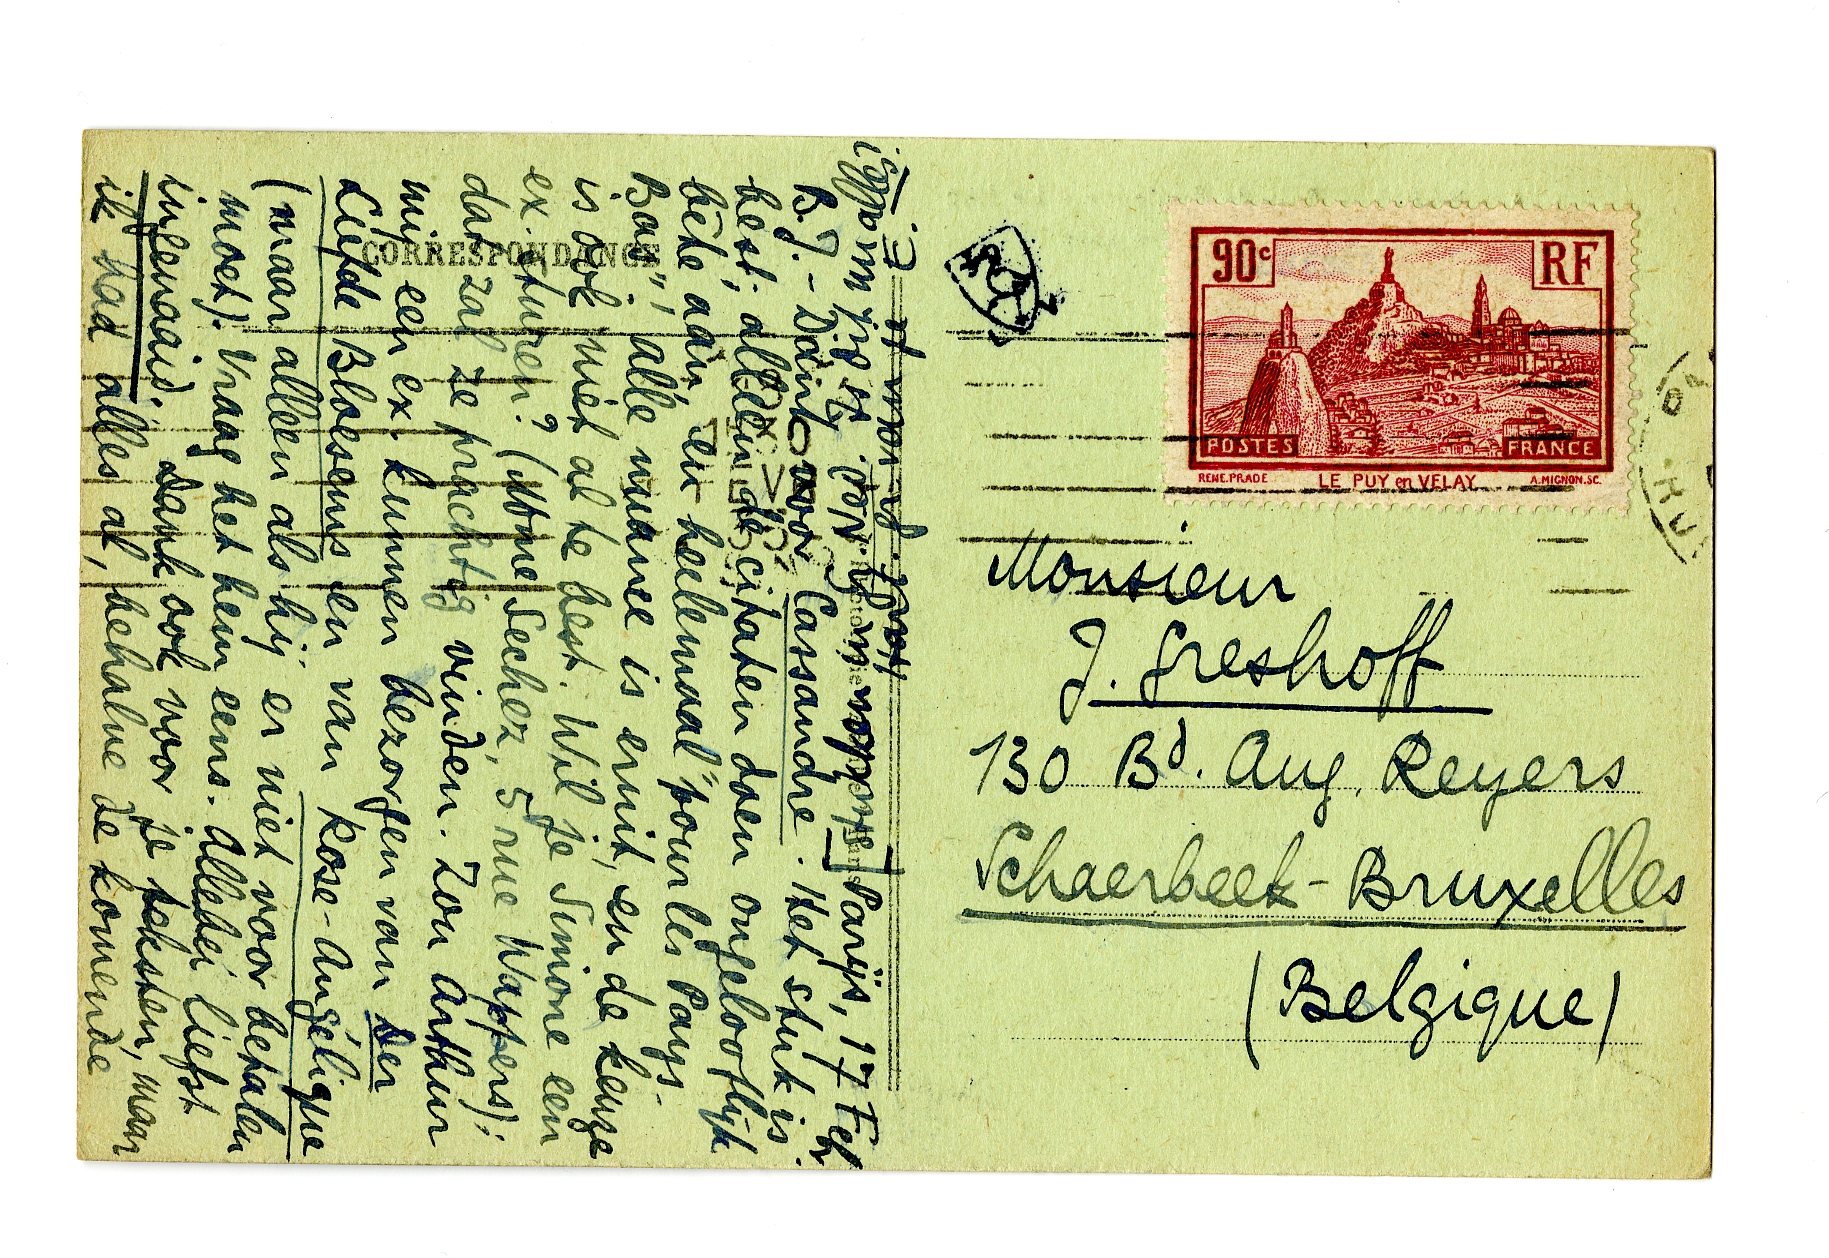 Parijs, 17 Feb.
B.J. - Dank voor Cassandre. Het stuk is
best; alleen de citaten doen ongelooflijk
bête aan en heelemaal "pour les Pays-
Bas"; alle nuance is eruit, en de keuze
is ook niet al te best. Wil je Simone een
ex. sturen? (Mme Sechez, 5 rue Wappers);
dat zal ze prachtig vinden. Zou Arthur
mij een ex. kunnen bezorgen van Der
Liefde Bloesems en van Rose-Angélique
(maar alleen als hij er niet voor betalen
moet). Vraag het hem eens. Allebei liefst
ingenaaid. Dank ook voor je teksten, maar
ik had alles al, behalve de komende
je E.
CORRESPONDANCE
90c
RF
POSTES
FRANCE
RENE.PRADE
LE PUY en VELAY
A.MIGNON.SC.
Monsieur
J. Greshoff
130 Bd. Aug. Reyers
Schaerbeek-Bruxelles
(Belgique)